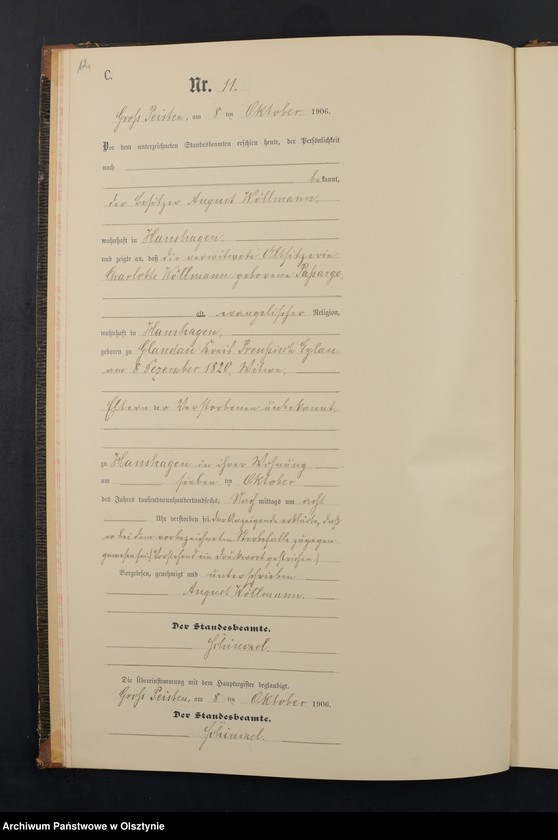 12.
C.
Nr. 11.
Groß Peisten, am 8 ten Oktober 1906.
Vor dem unterzeichneten Standesbeamten erschien heute, der Persönlichkeit
nach
bekannt,
der Besitzer August Wöllmann,
wohnhaft in Hanshagen
und zeigte an, daß die verwitwete Altsitzerin
Charlotte Wöllmann geborene Passarge
alt, evangelischer Religion,
wohnhaft in Hanshagen,
geboren zu Glandau Kreis Preußisch Eylau
am 8 Dezember 1820, Witwe,
Eltern der Verstorbenen unbekannt,
zu Hanshagen in ihrer Wohnung
am sieben ten Oktober
des Jahres tausendneunhundertundsechs, Nachmittags um acht
Uhr verstorben sei. Der Anzeigende erklärte, daß
er bei dem vorbezeichneten Sterbefalle zugegen
gewesen sei. (Vorstehend ein Druckwort gestrichen.)
Vorgelesen, genehmigt und unterschrieben
August Wöllmann.
Der Standesbeamte.
Die Übereinstimmung mit dem Hauptregister beglaubigt.
Groß Peisten, am 8 ten Oktober 1906.
Der Standesbeamte.
Archiwum Państwowe w Olsztynie